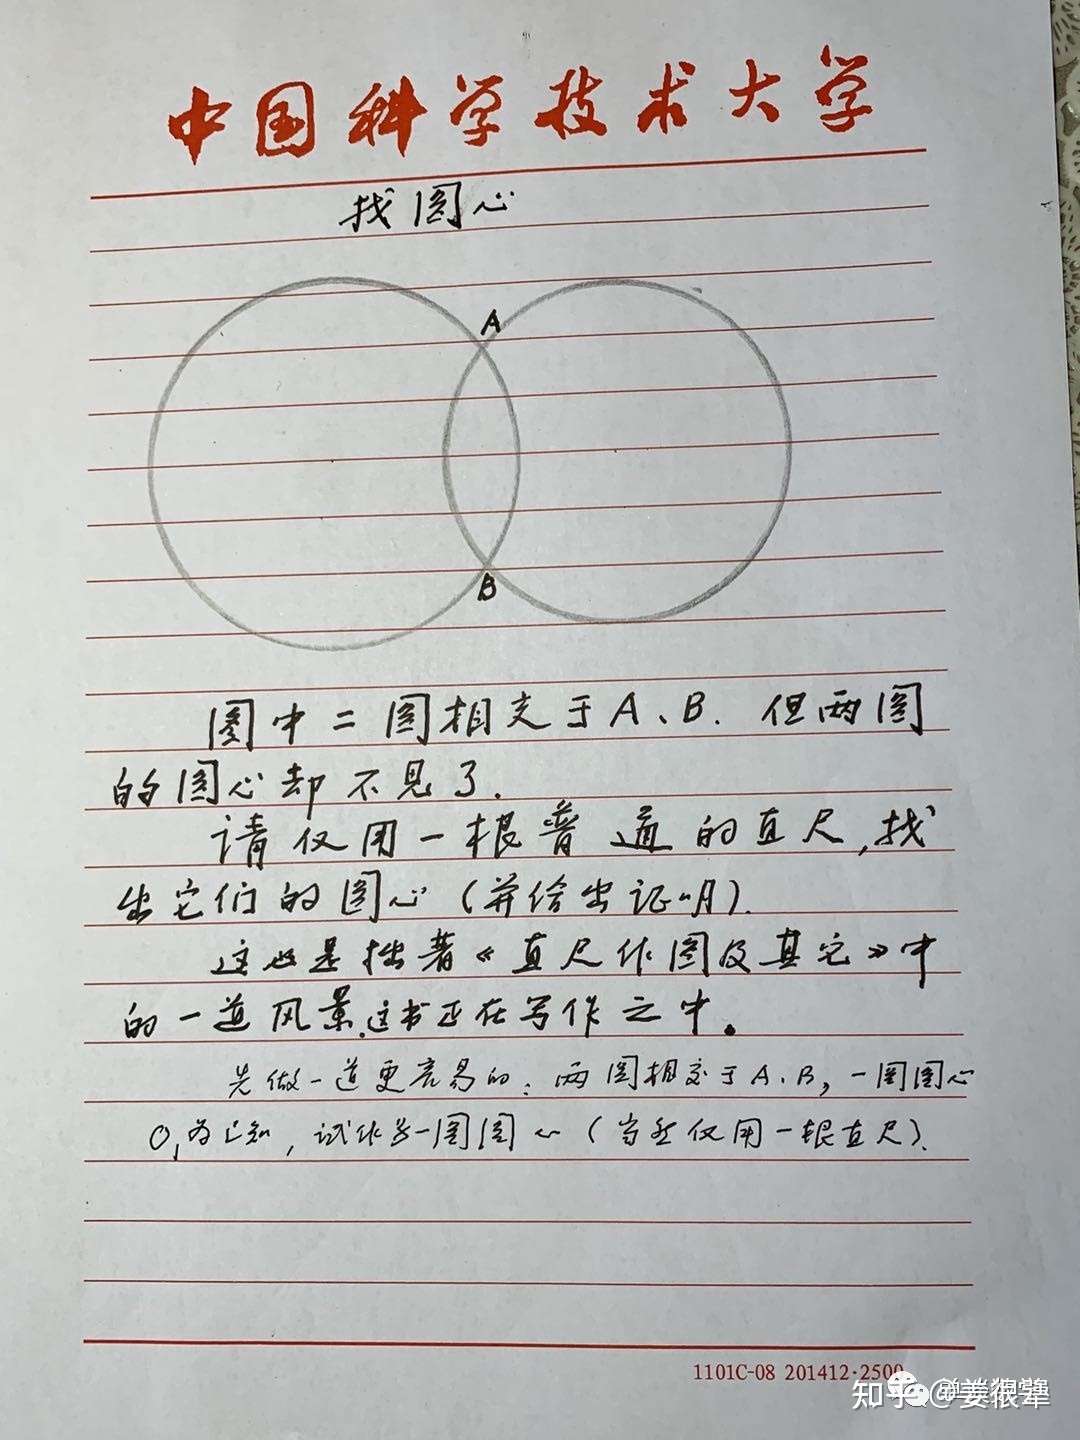 中国科学技术大学
找圆心
A
B
图中二圆相交于A、B.但两圆
的圆心却不见了.
请仅用一根普通的直尺,找
出它们的圆心(并给出证明).
这也是拙著《直尺作图及其它》中
的一道风景.这书正在写作之中。
先做一道更容易的:两圆相交于A、B,一圆圆心
O,为已知,试作另一圆圆心(当然仅用一根直尺).
1101C-08 201412·2500
知乎 @姜很犟